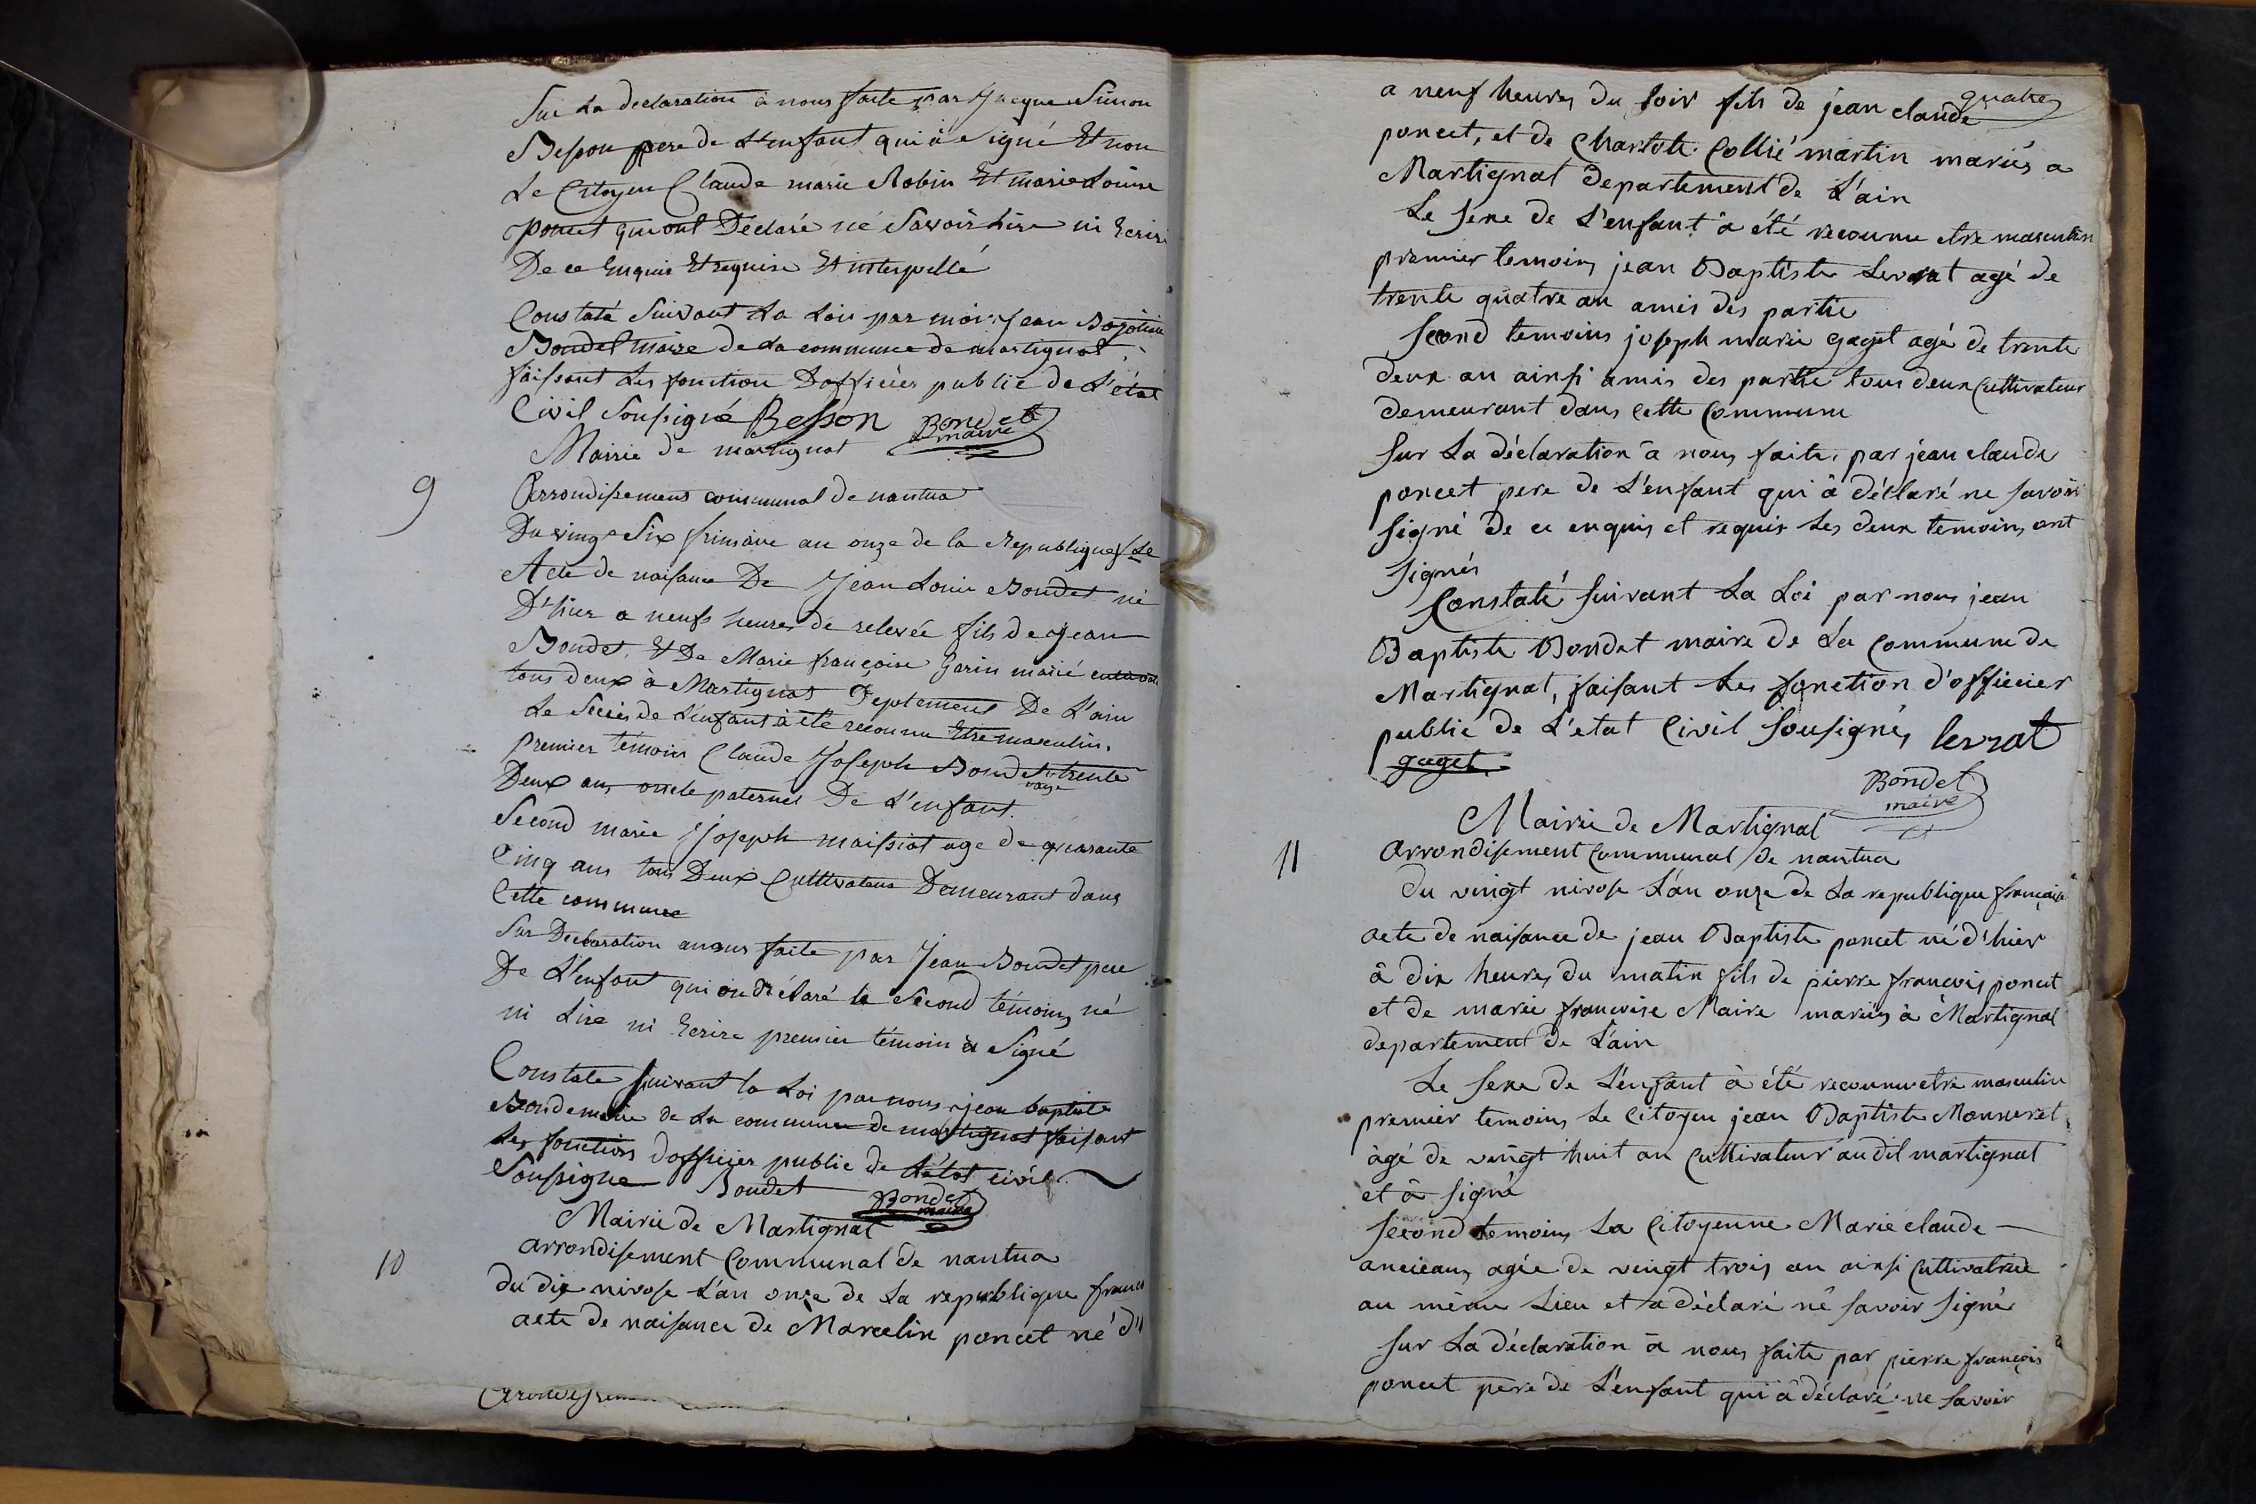 Sur La declaration à nous faite par Jacque Simon
Besson pere de L'enfant qui à Signé Et non
Le Citoyen Claude marie Robin Et marie Louise
poncet qui ont Déclaré né Savoir Lire ni Ecrire
De ce Enquis Et requise Et interpellé
Constaté Suivant La Loi par moi Jean
Bondet maire de La commune de martignat
faissant Les fonction D'officier public de L'état
Civil Soussigné Besson Bondet
maire
Mairie de martignat
9
Arrondissement communal de nantua
Du vingt Six frimaire an onze de la Republique
Acte de naisance De Jean Louis Bondet né
D'hier a neufs heures de relevée fils de Jean
Bondet Et De Marie françoise Garin marié
tous deux à Martignat Deptement De L'ain
Le Sexe de L'enfant à été reconnu Etre masculin.
Premier témoin Claude Joseph Bondet trente
Deux ans oncle paternel De L'enfant.
Second marie Joseph maissiat age de quarante
Cinq ans tous Deux Cultivateur Demeurant dans
Cette commune
Sur Declaration anous faite par Jean Bondet pere
De L'enfant qui on déclaré le Second témoins né
ni Lire ni Ecrire premier témoin à Signé
Constate suivant la Loi par nous jean baptiste
Bonde maire de La commune de martignat faisant
Les fonctions d'officier public de L'état civil
Soussigne Bondet Bondet
maire
Mairie de Martignat
10
arrondisement Communal de nantua
du dix nivose L'an onze de La republique
acte de naisance de Marcelin poncet né d'h
quatre
a neuf heures du soir fils de jean claude
poncet, et de Charlote Collié martin mariés a
Martignat departement de L'ain
Le sexe de L'enfant à été reconnu etre masculin
premier temoins jean Baptiste Levrat agé de
trente quatre an amis des partie
second temoins joseph marie gaget agé de trente
deux an ainsi amis des partie tous deux Cultivateur
demeurant dans Cette Commune
sur La déclaration à nous faite, par jean claude
poncet pere de L'enfant qui à déclaré ne savoir
signé de ce enquis et requis Les deux temoins ont
signés
Constaté suivant La Loi par nous jean
Baptiste Bondet maire de La Commune de
Martignat, faisant Les fonction d'officier
public de L'etat Civil sousignés levrat
gaget
Bondet
maire
Mairie de Martignat
11
arrondisement Communal de nantua
du vingt nivose L'an onze de La republique française
acte de naisance de jean Baptiste poncet né d'hier
à dix heures du matin fils de pierre françois poncet
et de marie françoise Maire mariés à Martignat
departement de L'ain
Le sexe de L'enfant à été reconnu etre masculin
premier temoins Le Citoyen jean Baptiste Monneret
âgé de vingt huit an Cultivateur au dit martignat
et à signé
second temoins La Citoyenne Marie claude
agée de vingt trois an ainsi Cultivatrice
au même Lieu et a déclaré né savoir signé
sur La déclaration à nous faite par pierre françois
poncet pere de L'enfant qui à déclaré ne savoir